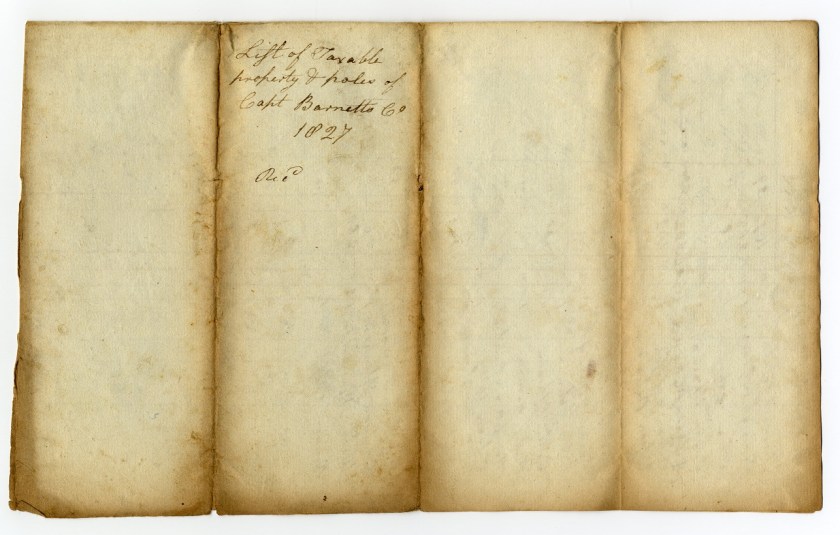 List of Taxable
property & poles of
Capt Barnetts Co
1827
Recd